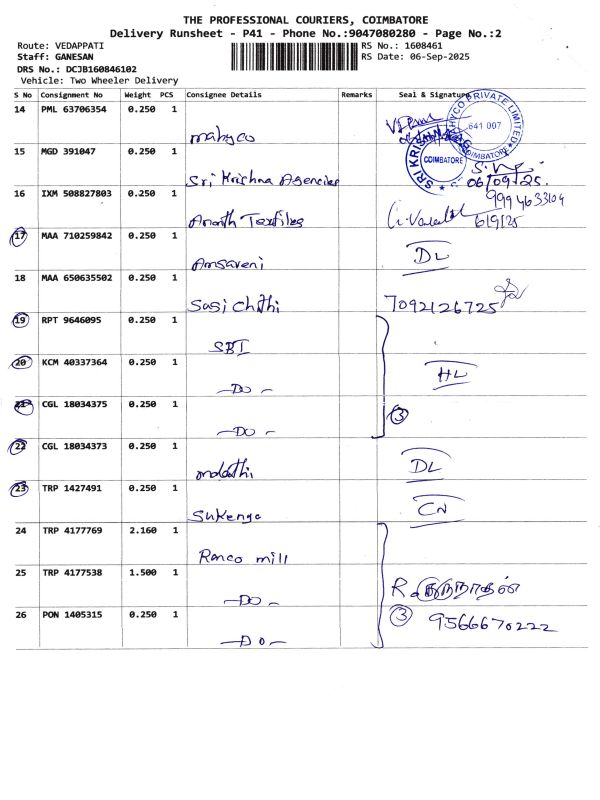 THE PROFESSIONAL COURIERS, COIMBATORE
Delivery Runsheet - P41 - Phone No.:9047080280 - Page No.:2
Route: VEDAPPATI
RS No.: 1608461
Staff: GANESAN
RS Date: 06-Sep-2025
DRS No.: DCJB160846102
Vehicle: Two Wheeler Delivery
S No Consignment No Weight PCS Consignee Details Remarks Seal & Signature
14 PML 63706354 0.250 1
mahyco
PRIVATE LIMITED
641 007
COIMBATORE
15 MGD 391047 0.250 1
Sri Krishna Agencies
SRI KRISHNA
COIMBATORE
06/09/25.
16 IXM 508827803 0.250 1
Ananth Textiles
6/9/25
17 MAA 710259842 0.250 1
Amsaveni
DL
18 MAA 650635502 0.250 1
Sasi Chithi
7092126725
19 RPT 9646095 0.250 1
SBI
20 KCM 40337364 0.250 1
-DO-
HL
21 CGL 18034375 0.250 1
-DO-
3
22 CGL 18034373 0.250 1
malathi
DL
23 TRP 1427491 0.250 1
Sukenya
CN
24 TRP 4177769 2.160 1
Ranco mill
25 TRP 4177538 1.500 1
-DO-
26 PON 1405315 0.250 1
-DO-
3 9566670222